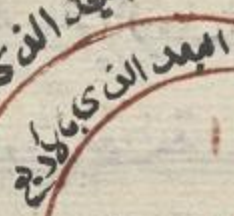 البعد الذي
البعد الذي بالأربع